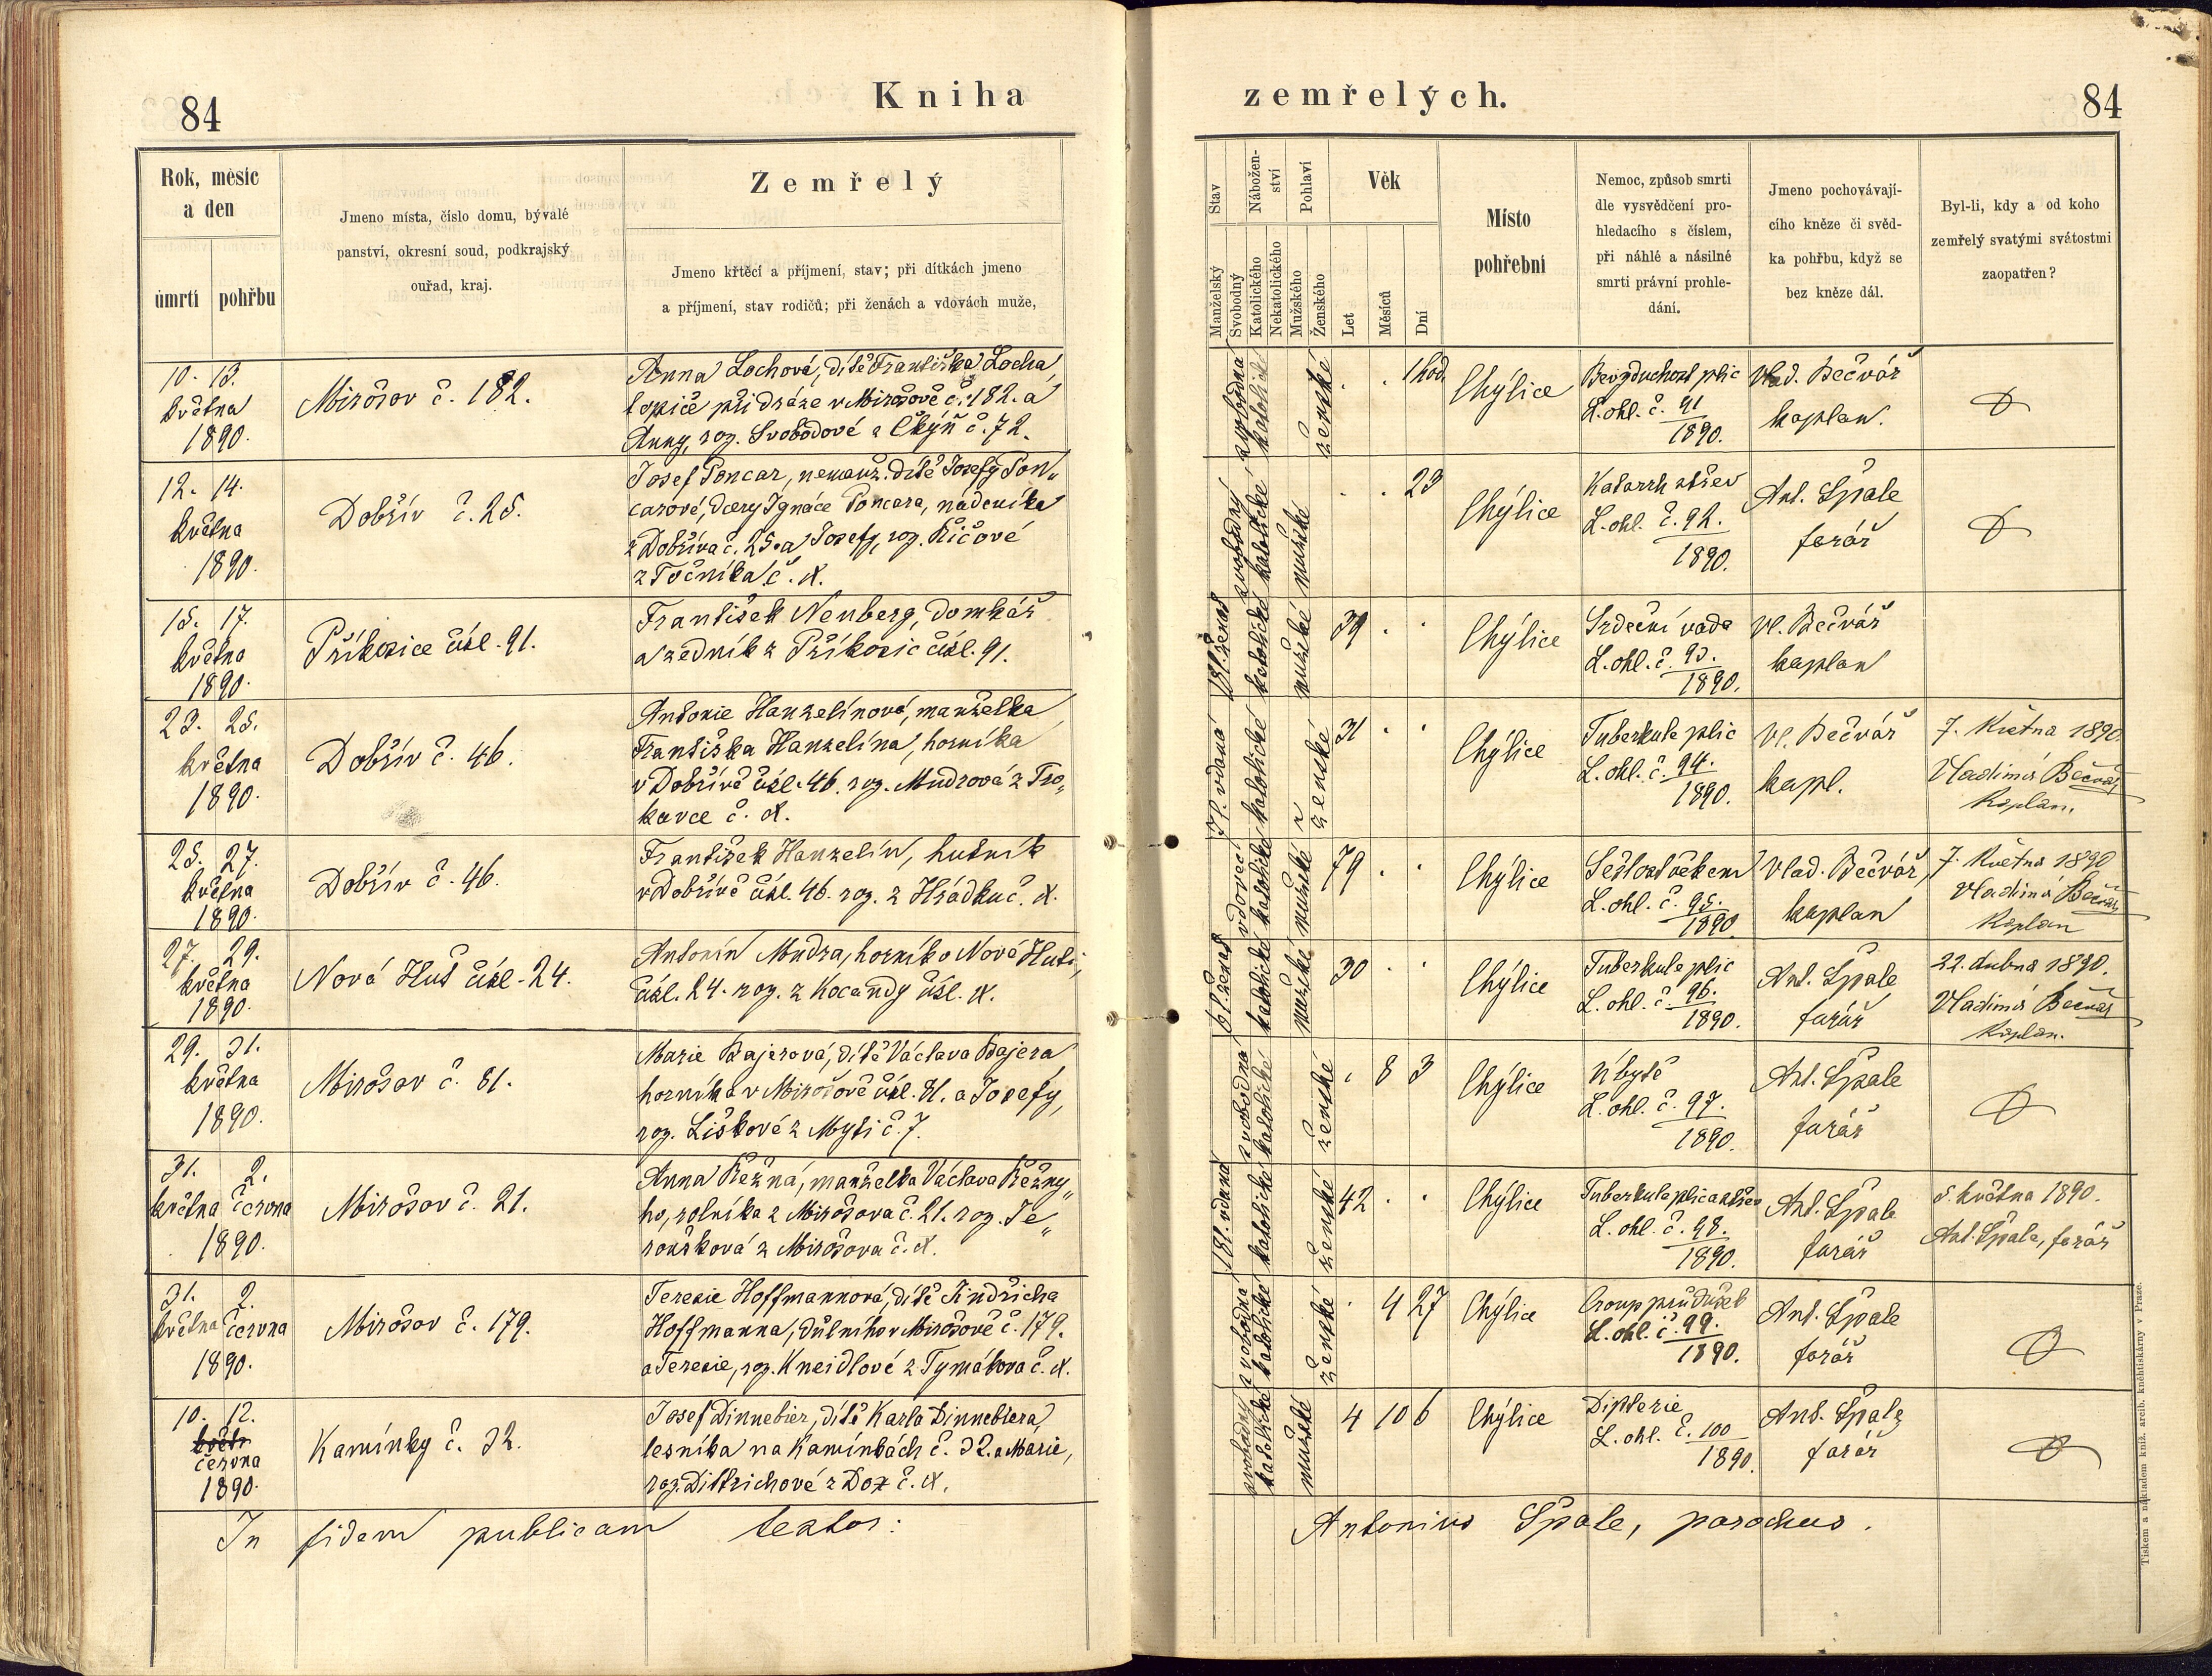 84
Kniha
zemřelých.
84
Rok, měsíc
a den
úmrtí
pohřbu
Jmeno místa, číslo domu, bývalé
panství, okresní soud, podkrajský
ouřad, kraj.
Zemřelý
Jmeno křtěcí a příjmení, stav; při dítkách jmeno
a příjmení, stav rodičů; při ženách a vdovách muže,
Stav
Manželský
Svobodný
Nábožen-
ství
Katolického
Nekatolického
Pohlaví
Mužského
Ženského
Věk
Let
Měsíců
Dní
Místo
pohřební
Nemoc, způsob smrti
dle vysvědčení pro-
hledacího s číslem,
při náhlé a násilné
smrti právní prohle-
dání.
Jmeno pochovávají-
cího kněze či svěd-
ka pohřbu, když se
bez kněze dál.
Byl-li, kdy a od koho
zemřelý svatými svátostmi
zaopatřen?
10. 13.
května
1890.
Mirošov č. 182.
Anna Lochová, dítě Františka Locha,
topiče při dráze v Mirošově č. 182. a
Anny, roz. Svobodové z Čkyň č. 72.
svobodná
katolické
ženské
. . 1 hod.
Chýlice
Bezduchost plic
L. ohl. č. 91
1890.
Vlad. Bečvář
kaplan.
12. 14.
května
1890.
Dobřív č. 25.
Josef Poncar, nemanž. dítě Josefy Pon„
carové, dcery Ignáce Poncara, nádeníka
z Dobříva č. 25. a Josefy, roz. Říčové
z Točníka č. x.
svobodný
katolické
mužské
. . 23
Chýlice
Katarrh střev
L. ohl. č. 92.
1890.
Ant. Špale
farář
15. 17.
května
1890.
Příkosice čísl. 91.
František Neuberg, domkář
a zedník z Příkosic čísl. 91.
katolické
mužské
39 . .
Chýlice
Srdeční vada
L. ohl. č. 93.
1890.
Vl. Bečvář
kaplan
23. 25.
května
1890.
Dobřív č. 46.
Antonie Hanzelínová, manželka
Františka Hanzelína, horníka
v Dobřívě čísl. 46. roz. Mudrová z Tro„
kavce č. x.
7 l. vdaná
katolické
ženské
31 . .
Chýlice
Tuberkule plic
L. ohl. č. 94.
1890.
Vl. Bečvář
kapl.
7. Května 1890.
Vladimír Bečvář
Kaplan.
25. 27.
května
1890.
Dobřív č. 46.
František Hanzelín, hutník
v Dobřívě čísl. 46. roz. z Hrádku č. x.
vdovec
katolické
mužské
79 . .
Chýlice
Sešlost věkem
L. ohl. č. 95.
1890.
Vlad. Bečvář,
kaplan
7. Května 1890
Vladimír Bečvář
Kaplan
27. 29.
května
1890.
Nová Huť čísl. 24.
Antonín Mudra, horník v Nové Huti,
čísl. 24. roz. z Kocandy čísl. x.
6 l. ženat
katolické
mužské
30 . .
Chýlice
Tuberkule plic
L. ohl. č. 96.
1890.
Ant. Špale
farář
22. dubna 1890.
Vladimír Bečvář
Kaplan.
29. 31.
května
1890.
Mirošov č. 81.
Marie Bajerová, dítě Václava Bajera
horníka v Mirošově čísl. 81. a Josefy,
roz. Liškové z Myti č. 7.
svobodná
katolické
ženské
. 8 3
Chýlice
Úbytě
L. ohl. č. 97.
1890.
Ant. Špale
farář
31. 2.
května června
1890.
Mirošov č. 21.
Anna Řežná, manželka Václava Řežny„
ho, rolníka z Mirošova č. 21. roz. Te„
z Mirošova č. x.
18 l. vdaná
katolické
ženské
42 . .
Chýlice
Tuberkule plic a střev
L. ohl. č. 98.
1890.
Ant. Špale
farář
5. května 1890.
Ant. Špale, farář
31. 2.
května června
1890.
Mirošov č. 179.
Terezie Hoffmannová, dítě Jindřicha
Hoffmanna, důlního v Mirošově č. 179.
a Terezie, roz. Kneidlové z Tymákova č. x.
svobodná
katolické
ženské
. 4 27
Chýlice
Croup průdušek
L. ohl. č. 99.
1890.
Ant. Špale
farář
10. 12.
květn
června
1890.
Kamínky č. 32.
Josef Dinnebier, dítě Karla Dinnebiera,
lesníka na Kamínkách č. 32. a Marie,
roz. Dittrichové z Dox č. x.
svobodný
katolické
mužské
4 10 6
Chýlice
Difterie
L. ohl. č. 100
1890.
Ant. Špale
farář
In fidem publicam testor:
Antonius Špale, parochus.
Tiskem a nákladem kníž. arcib. kněhtiskárny v Praze.